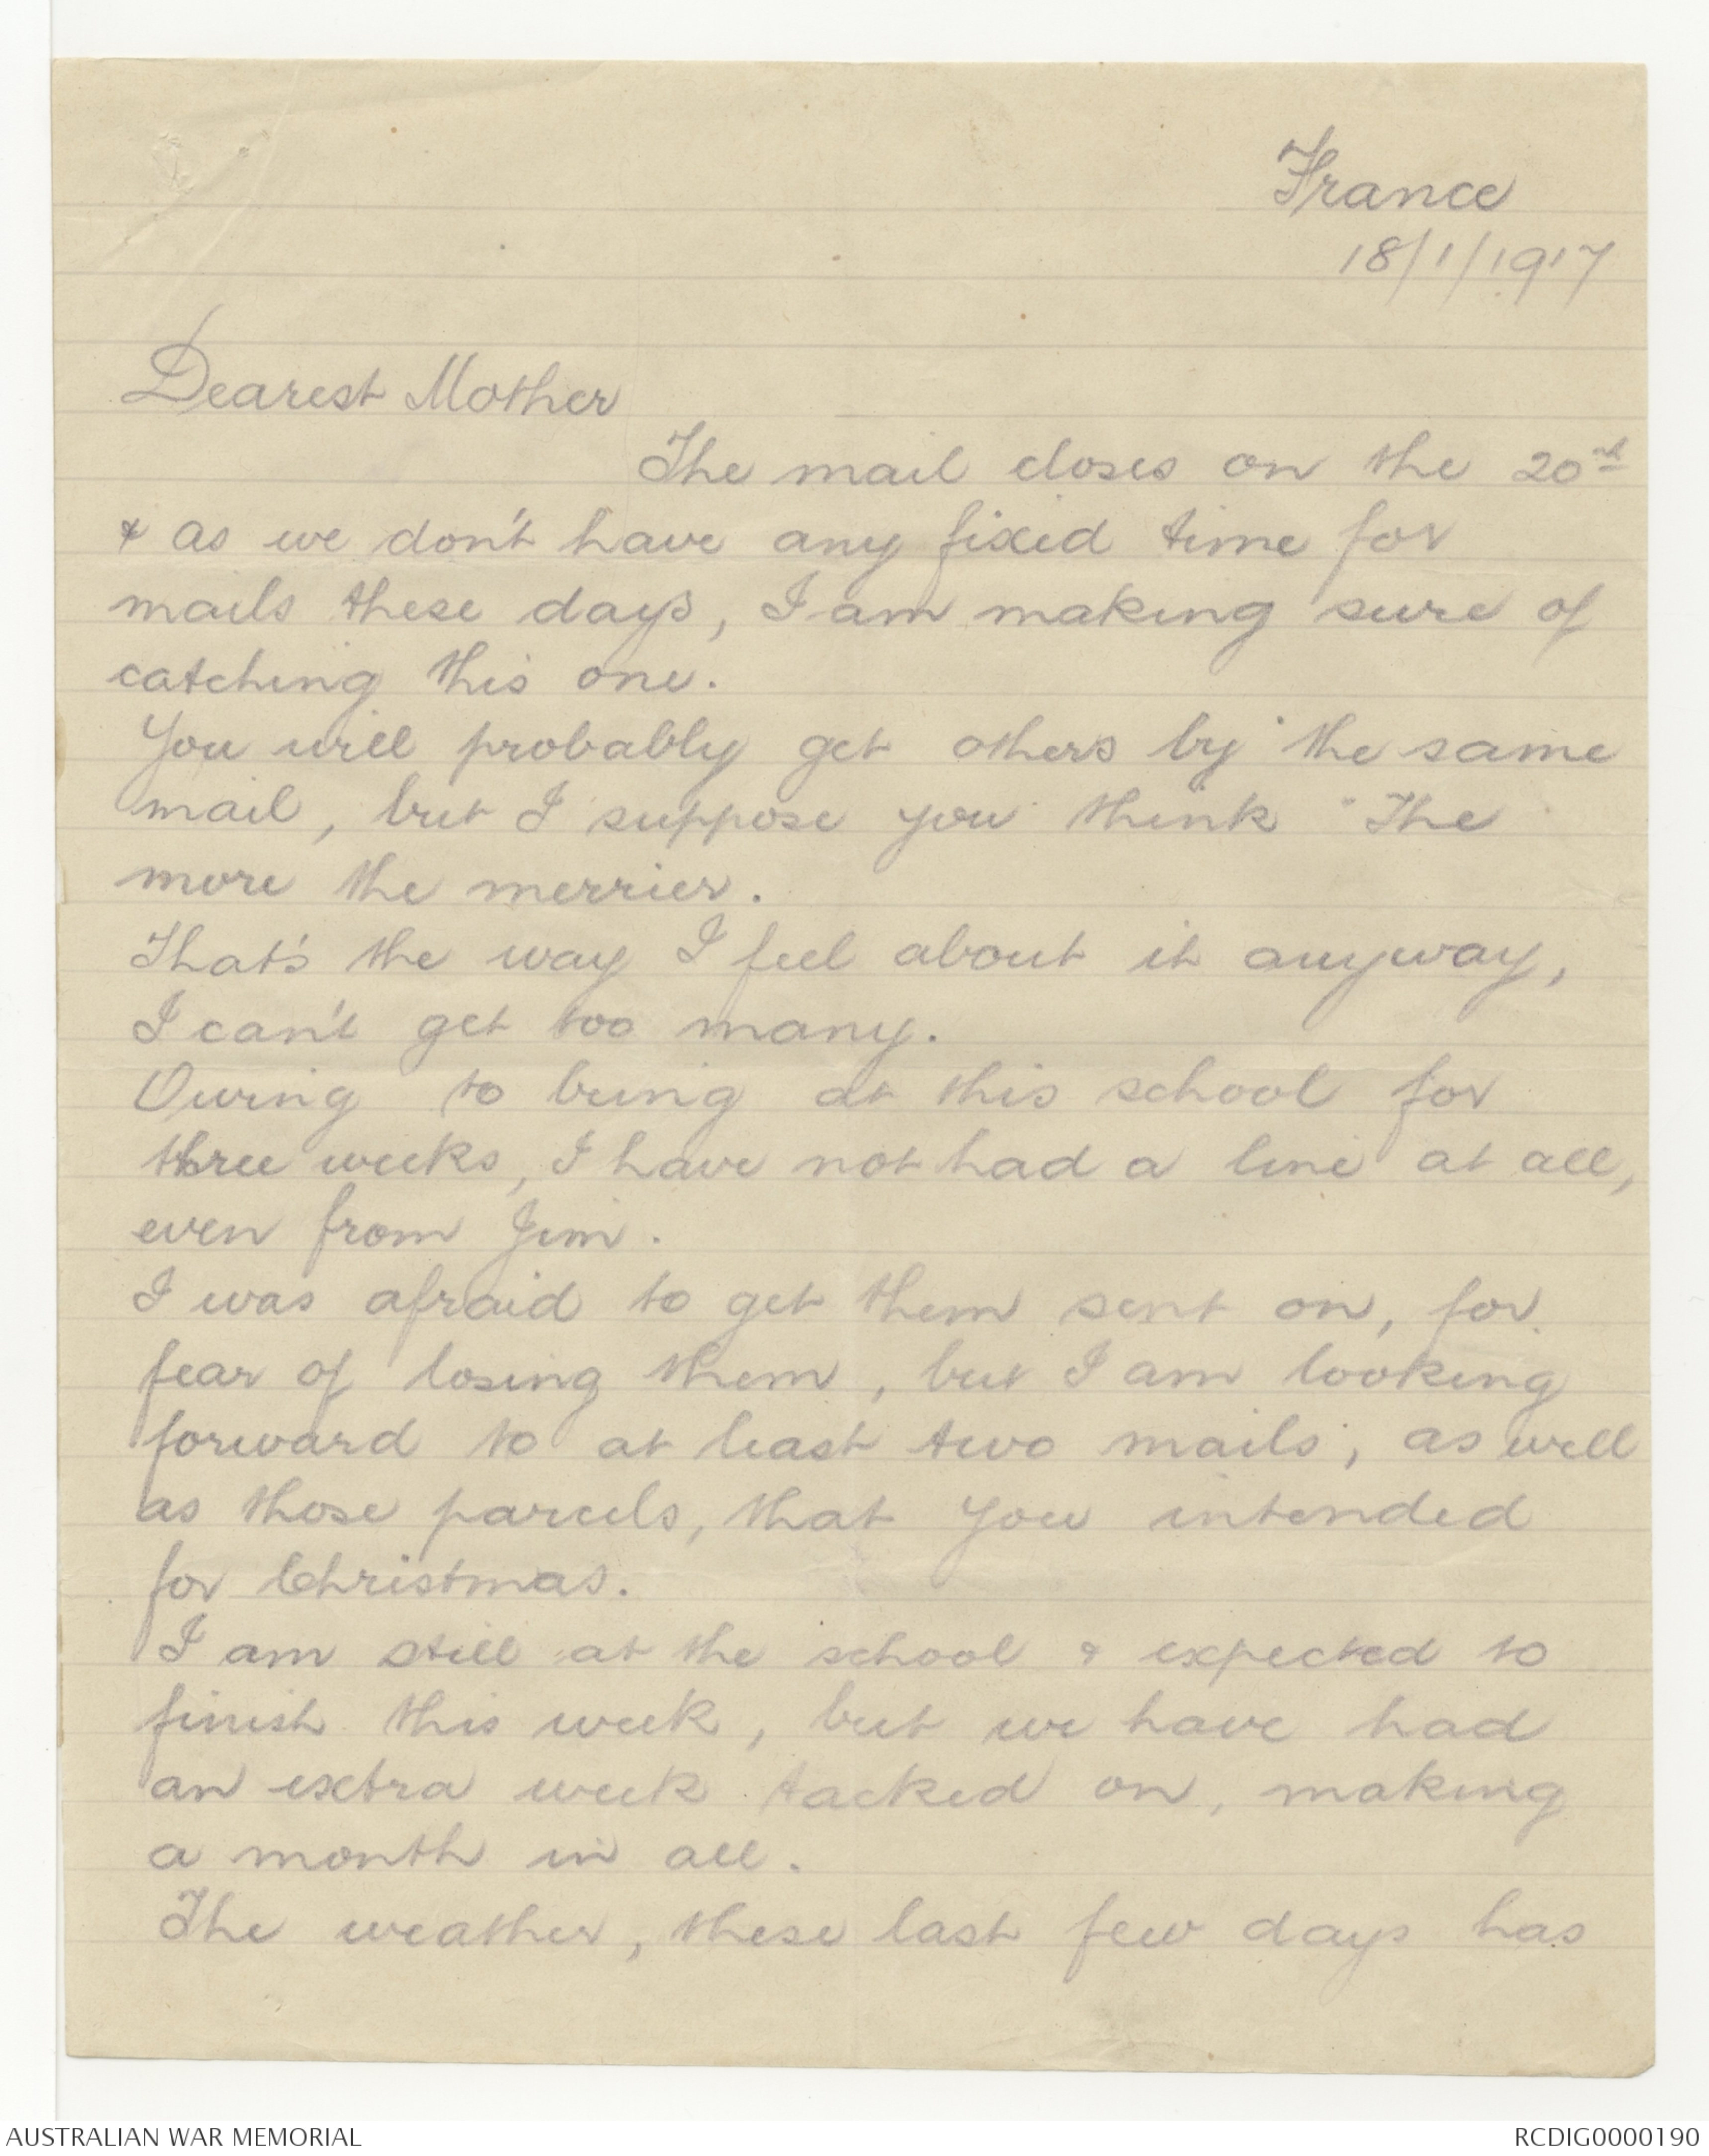 France
18/1/1917
Dearest Mother
The mail closes on the 20th
& as we don't have any fixed time for
mails these days, I am making sure of
catching this one.
You will probably get others by the same
mail, but I suppose you think "The
more the merrier.
That's the way I feel about it anyway,
I can't get too many.
Owing to being at this school for
three weeks, I have not had a line at all,
even from Jim.
I was afraid to get them sent on, for
fear of losing them, but I am looking
forward to at least two mails, as well
as those parcels, that you intended
for Christmas.
I am still at the school & expected to
finish this week, but we have had
an extra week tacked on, making
a month in all.
The weather, these last few days has
AUSTRALIAN WAR MEMORIAL
RCDIG0000190